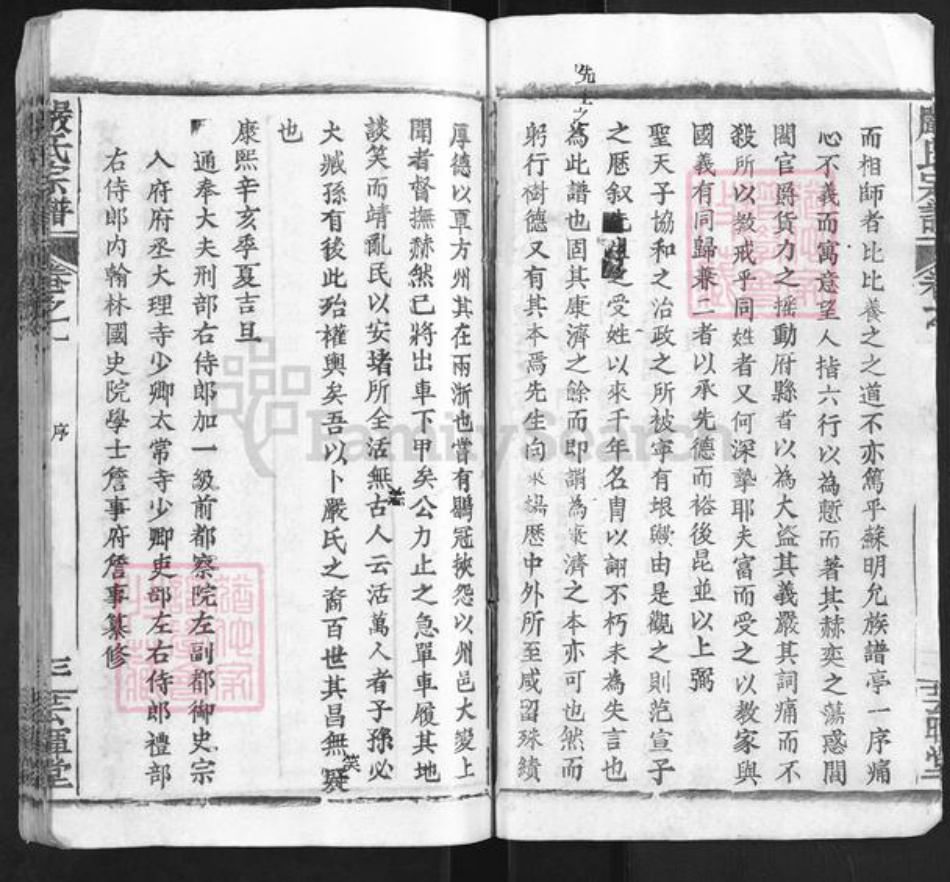 而相師者比比養之之道不亦篤乎蘇明允族譜亭一序痛
心不義而寓意望人揩六行以為慙而著其赫奕之蕩惑閭
閻官爵貨力之搖動府縣者以為大盜其義嚴其詞痛而不
殺所以教戒乎同姓者又何深摯耶夫富而受之以教家與
國義有同歸兼二者以承先德而裕後昆並以上弼
聖天子協和之治政之所被寧有垠歟由是觀之則范宣子
之歷叙受姓以來千年名胄以詡不朽未為失言也
先士之
為此譜也固其康濟之餘而即謂為康濟之本亦可也然而
躬行樹德又有其本焉先生向來揚歷中外所至咸留殊績
嚴氏宗譜
厚德以覃方州其在兩浙也嘗有鶡冠挾怨以州邑大變上
聞者督撫赫然已將出車下甲矣公力止之急單車履其地
談笑而靖亂民以安堵所全活無古人云活萬人者子孫必
大臧孫有後此殆權輿矣吾以卜嚴氏之裔百世其昌無疑
矣
也
康熙辛亥季夏吉旦
通奉大夫刑部右侍郎加一級前都察院左副都御史宗
入府府丞大理寺少卿太常寺少卿吏部左右侍郎禮部
右侍郎內翰林國史院學士詹事府詹事纂修
嚴氏宗譜
卷之一
序
三